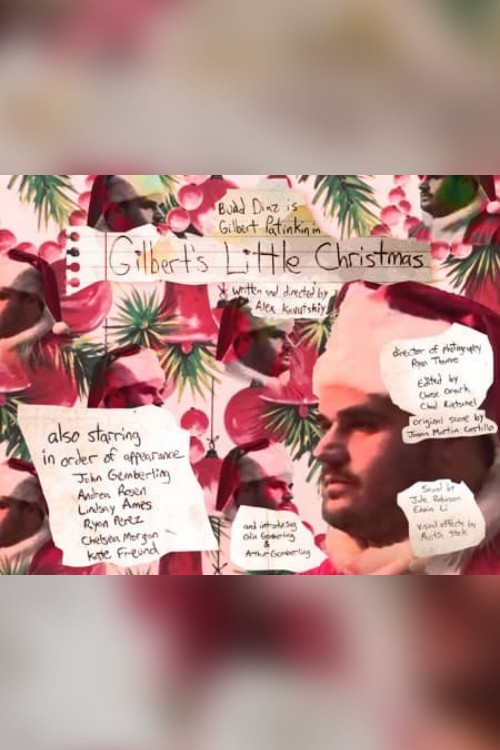 Budd Diaz is
Gilbert Patinkin in
Gilbert's Little Christmas
* written and directed by
Alex Kavutskiy
director of photography
Ryan Thomas
Edited by
Chase
Chad
original score by
Juan Martin Castillo
also starring
in order of appearance
John Gemberling
Andrea Rosen
Lindsay Ames
Ryan Perez
Chelsea Morgan
Kate Freund
and introducing
Gemberling
&
Arthur Gemberling
Sound by
Jude Robinson
Edwin Li
Visual effects by